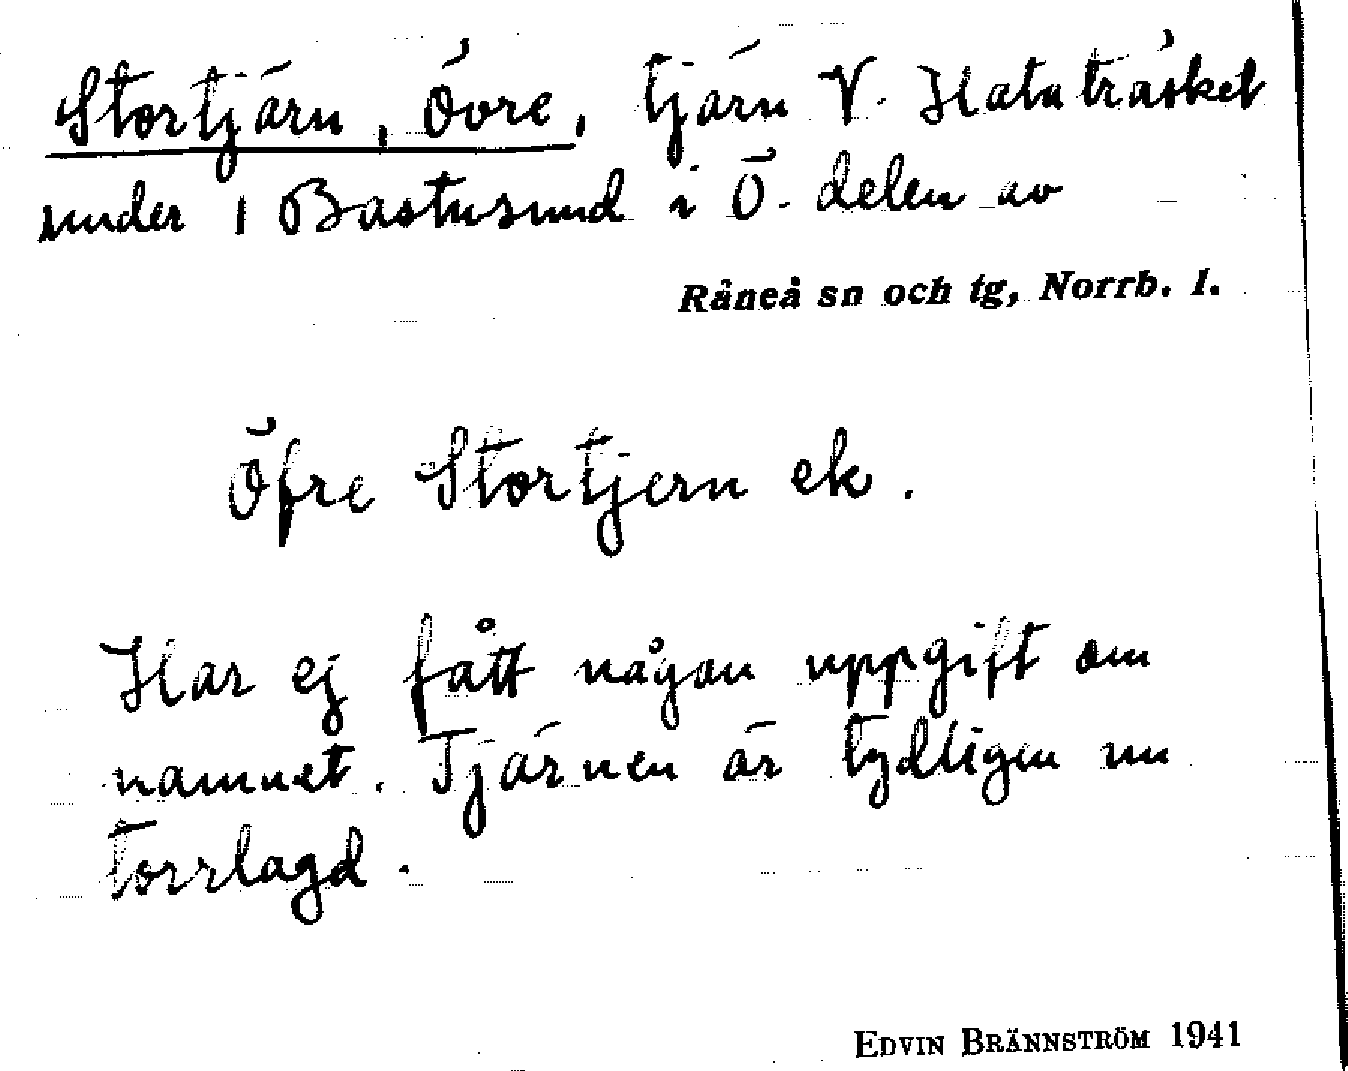 Stortjärn, Övre, tjärn V. Hataträsket
under 1 Bastusund i Ö. delen av
Råneå sn och tg, Norrb. l.
Öfre Stortjern ek.
Har ej fått någon uppgift om
namnet. Tjärnen är tydligen nu
torrlagd.
EDVIN BRÄNNSTRÖM 1941